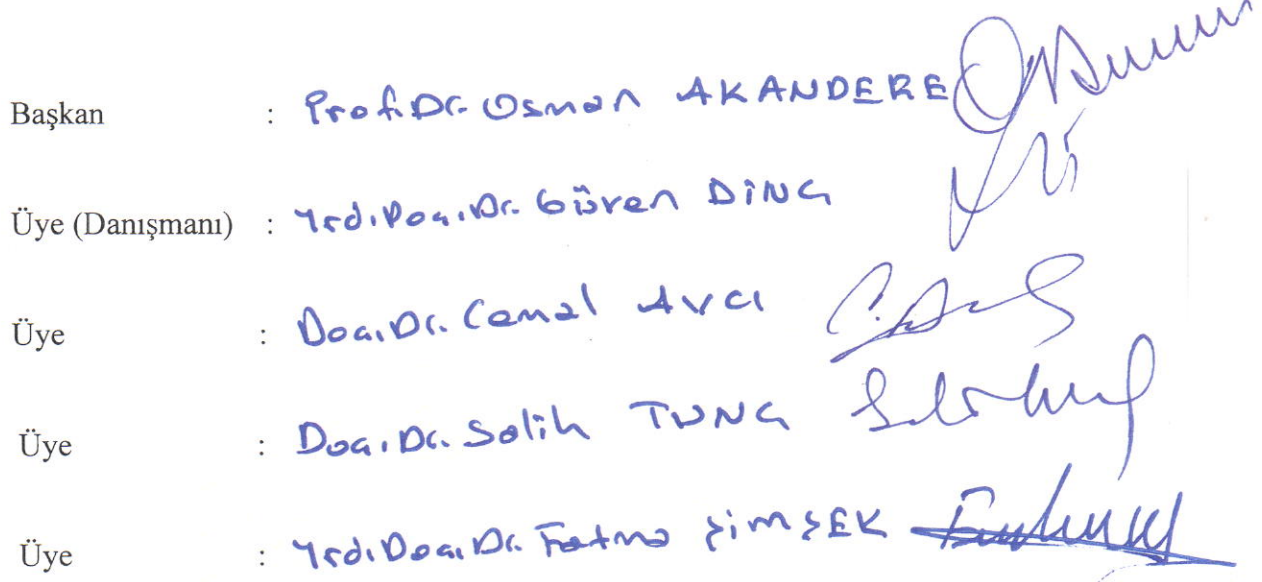 Başkan : Prof. Dr. Osman AKANDERE
Üye (Danışmanı) : Yrd. Doç. Dr. Güven DİNÇ
Üye : Doç. Dr. Cemal AVCI
Üye : Doç. Dr. Salih TUNÇ
Üye : Yrd. Doç. Dr. Fatma ŞİMŞEK